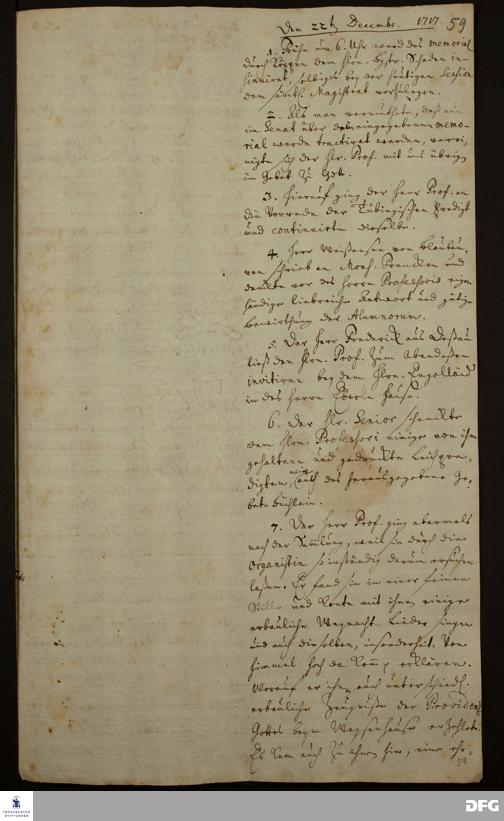 Den 22t Decembr. 1717. 59
1. Frühe um 6. Uhr ward das memorial
durch Köppen dem Hrn. Bgstr. Schaden in-
sinuiret, selbiges bey der heutigen Session
dem sämtl. Magistrat vorzulegen.
2. Als man vermuthete, daß nun
im Senat über das eingegebene memo-
rial werde tractiret werden, verei-
nigte sich der Hr. Prof. mit uns übrigen
im Gebet zu Gott.
3. Hierauf ging der Herr Prof. an
die Vorrede der Tübingischen Predigt
und continuirte dieselbe.
4. Herr Weißensee von Blaubeu-
ren schrieb an Mons. Francken und
danckte vor des Herrn Professoris eigen
händige liebreiche Antwort und gütige
bewirthung der Alumnorum.
5. Der Herr Frederick aus Deßau
ließ den Hrn. Prof. zum Abendeßen
invitiren bey dem Hrn. Engelländ
in des Herrn Eberlin Hause.
6. Der Hr. Senior schenckte
dem Hrn. Professori einige von ihm
gehaltene und gedruckte Leichpre-
digten, wie auch das herausgegebene Ge-
bet-büchlein.
7. Der Herr Prof. ging abermals
nach der Samlung, weil sie durch die
Organistin so inständig darum ersuchen
laßen. Er fand sie in einer feinen
Stille und konte mit ihnen einige
erbauliche Weynacht Lieder singen
und auch dieselben, insonderheit, Vom
Himmel hoch da kom̄ p erklären.
Worauf er ihnen auch unterschiedl.
erbauliche Zeugniße der Providenz
Gottes beym Waysenhause erzehlete.
Es kam auch zu ihnen hin, eine ehr-
59
FRANCKESCHE STIFTUNGEN
DFG